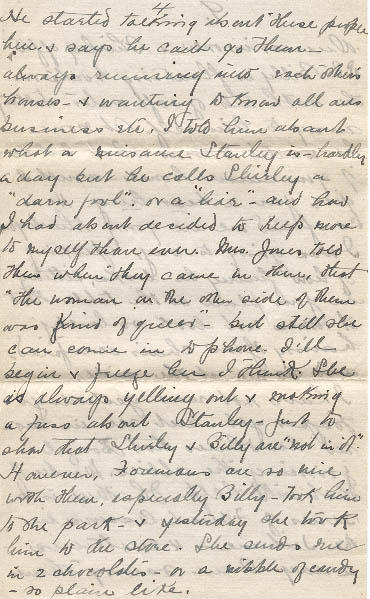 4
He started talking about these people
here & says he can't go them -
always running into each others
houses - & wanting to know all our
business etc. I told him about
what a nuisance Stanley is - hardly
a day but he calls Shirley a
"darn fool". or a "liar" - and how
I had about decided to keep more
to myself than ever. Mrs. Jones told
them when they came in there, that
"the woman on the other side of them
was kind of queer" - but still she
can come in to phone. I'll
begin & freeze her I think. She
is always yelling out & making
a fuss about Stanley - just to
show that Shirley & Billy are "not in it".
However, Foremans are so nice
with them, especially Billy - took him
to the park - & yesterday she took
him to the store. She sends me
in 2 chocolates - or a nibble of candy
- so like.